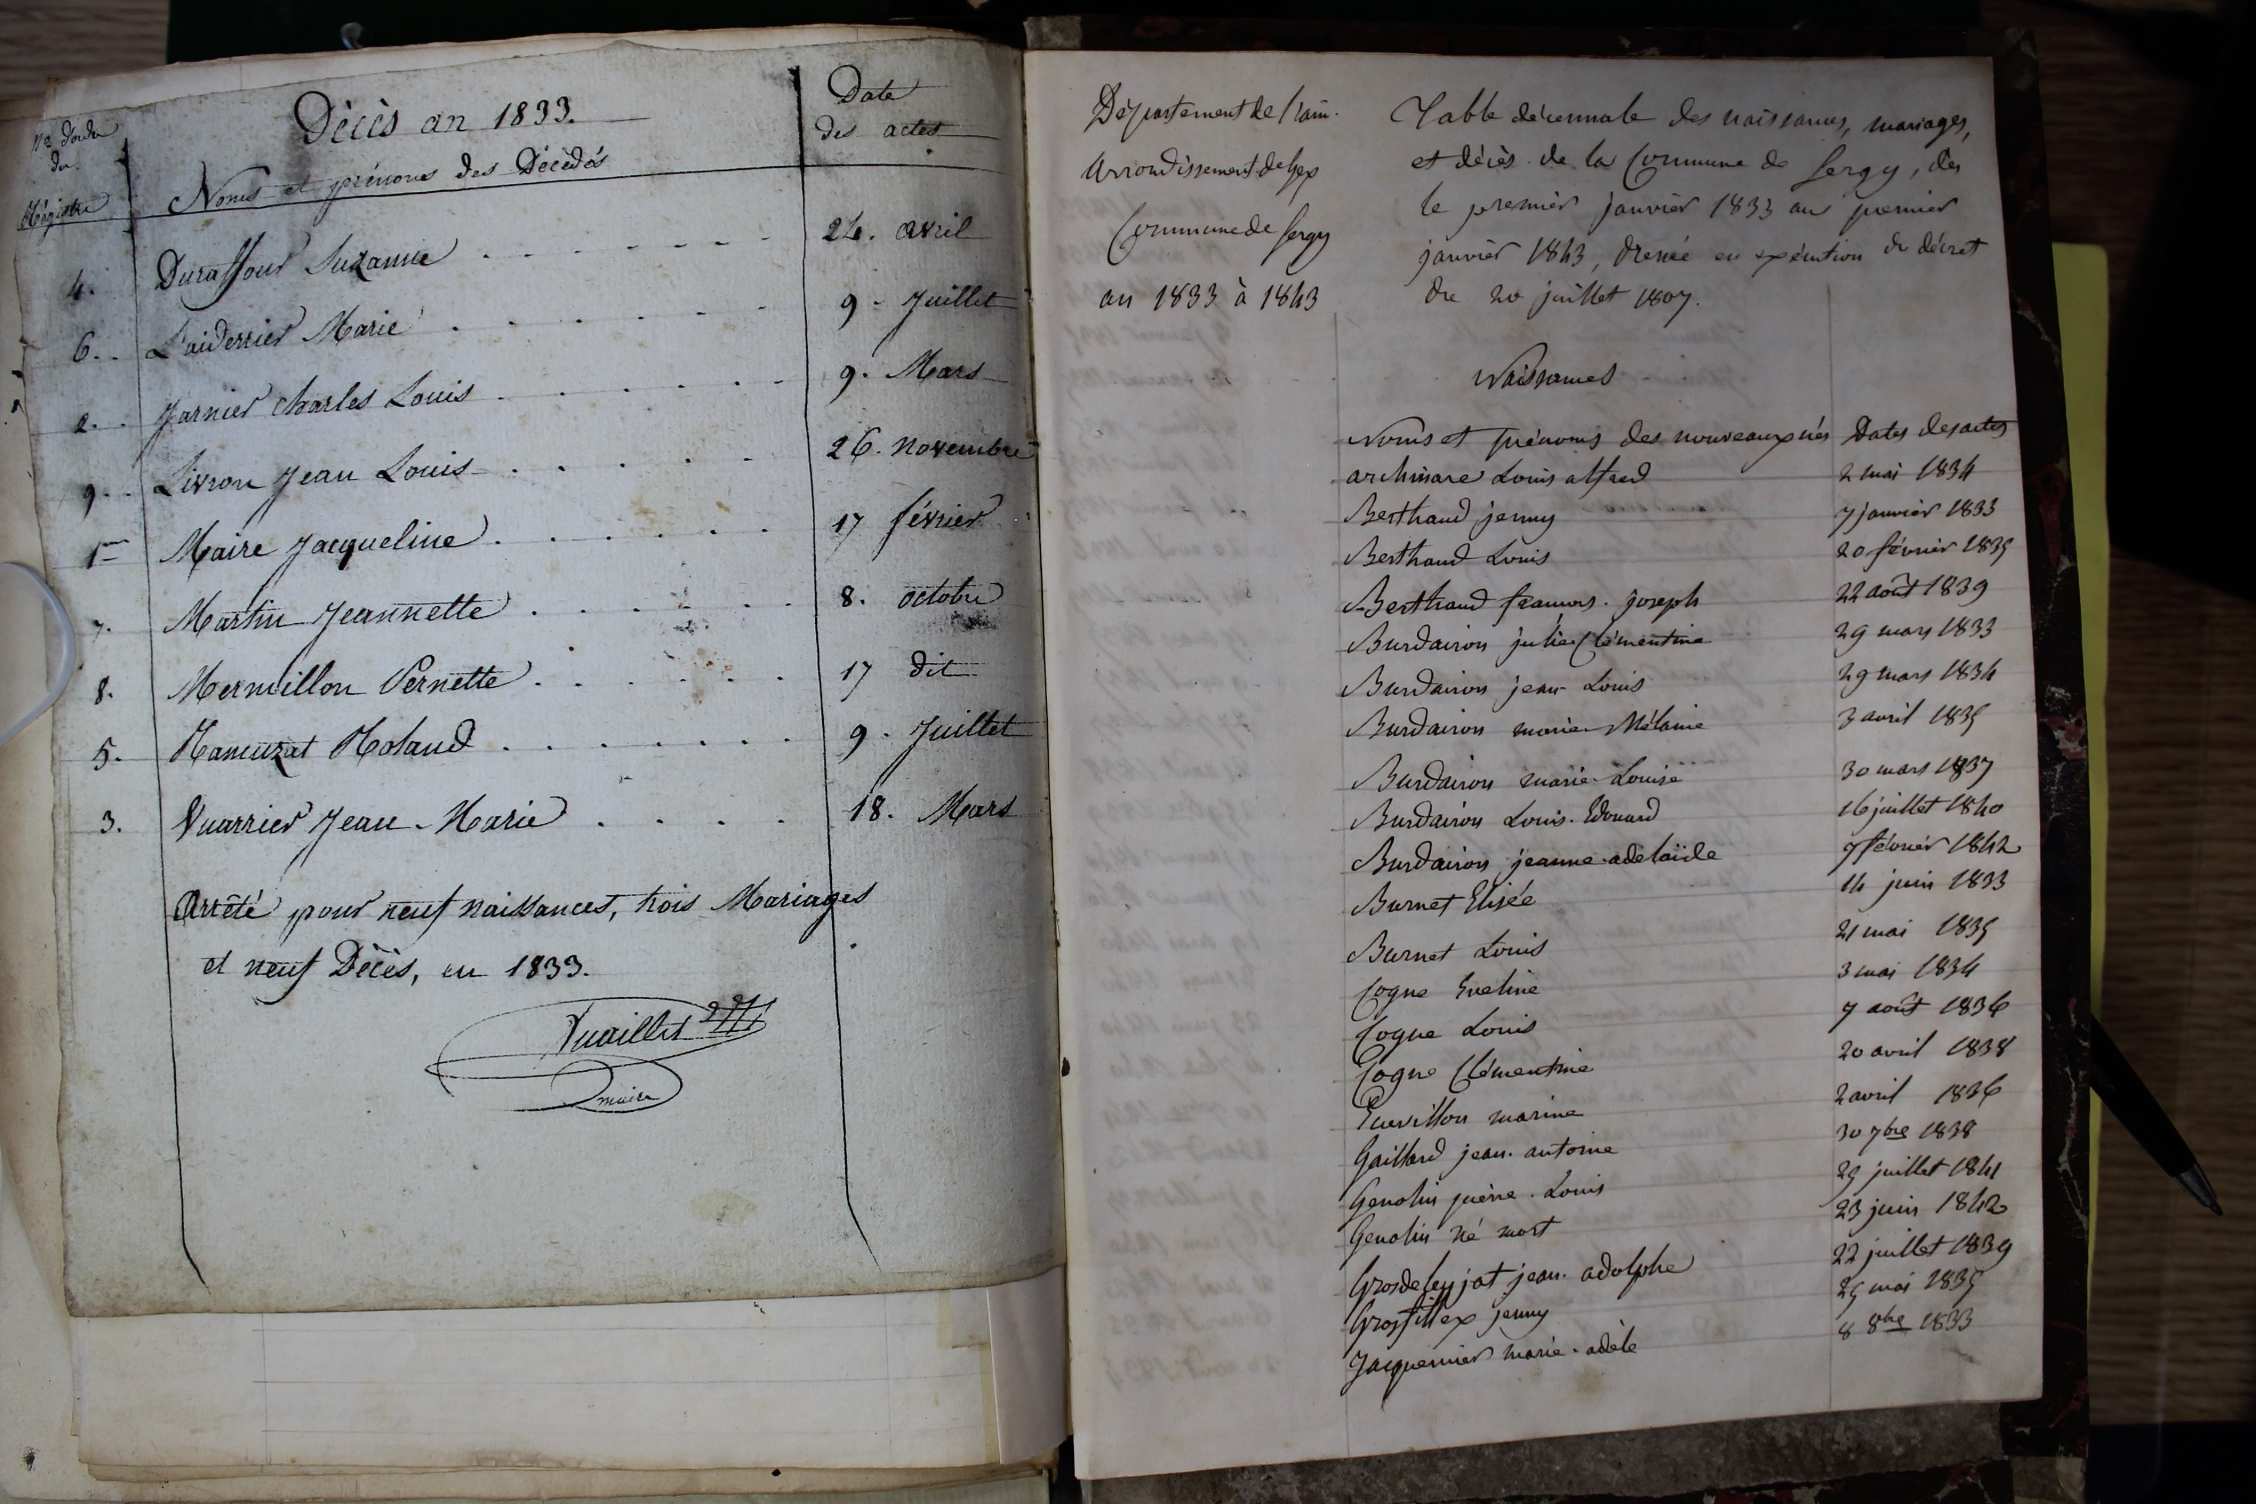 Décès an 1833.
No d'ordre du Régistre
Noms et prénoms des Décédés
Date des actes
4. Duraffour Suzanne 24. avril
6. Laiderrier Marie 9. Juillet
2. Jarnier Charles Louis 9. Mars
9. Livron Jean Louis 26. novembre
1er Maire Jacqueline 17 février
7. Martin Jeannette 8. octobre
8. Mermillon Pernette 17 dit
5. Ramuzat Roland 9. Juillet
3. Vuarrier Jean-Marie 18. Mars
Arrêté pour neuf naissances, trois Mariages
et neuf Décès, en 1833.
Vuaillet
maire
Département de l'ain.
Arrondissement de Gex
Commune de Sergy
an 1833 à 1843
Table décennale des naissances, mariages,
et décès de la Commune de Sergy, dès
le premier janvier 1833 au premier
janvier 1843, dressée en exécution du décret
du 20 juillet 1807.
Naissances
Noms et prénoms des nouveaux nés Dates des actes
archinare Louis alfred 2 mai 1834
Berthaud jenny 7 janvier 1833
Berthaud Louis 20 février 1835
Berthaud françois. joseph 22 août 1839
Burdairon julie Clémentine 29 mars 1833
Burdairon jean Louis 29 mars 1834
Burdairon marie Mélanie 3 avril 1835
Burdairon marie Louise 30 mars 1837
Burdairon Louis. Edouard 16 juillet 1840
Burdairon jeanne adelaïde 9 février 1842
Burnet Elisée 14 juin 1833
Burnet Louis 21 mai 1835
Cogne Eveline 3 mai 1834
Cogne Louis 7 août 1836
Cogne Clémentine 20 avril 1838
Ecuvillon marine 2 avril 1836
Gaillard jean. antoine 30 7bre 1838
Genolin pierre. Louis 29 juillet 1841
Genolin né mort 23 juin 1842
Grosdeleyjat jean. adolphe 22 juillet 1839
Grosfillex jenny 25 mai 1835
Jacquemier marie. adèle 8 8bre 1833